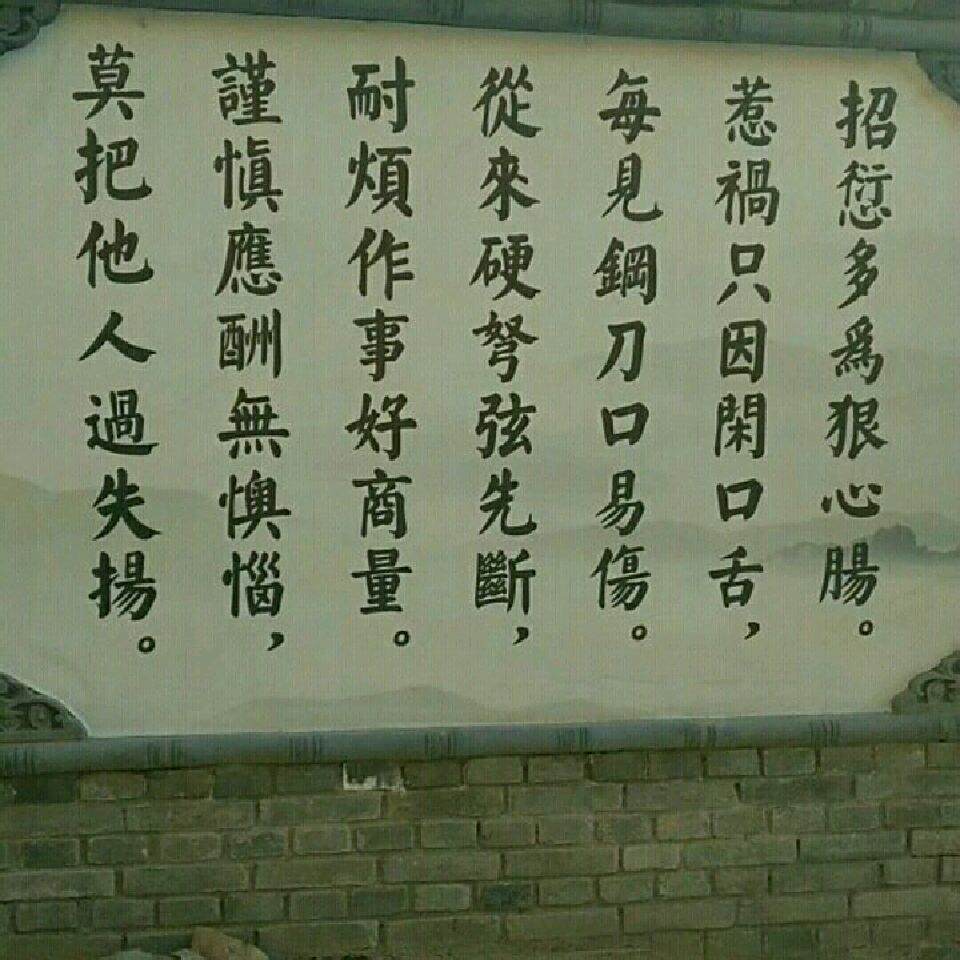 招愆多為狠心腸。
惹禍只因閑口舌，
每見鋼刀口易傷。
從來硬弩弦先斷，
耐煩作事好商量。
謹慎應酬無懊惱，
莫把他人過失揚。